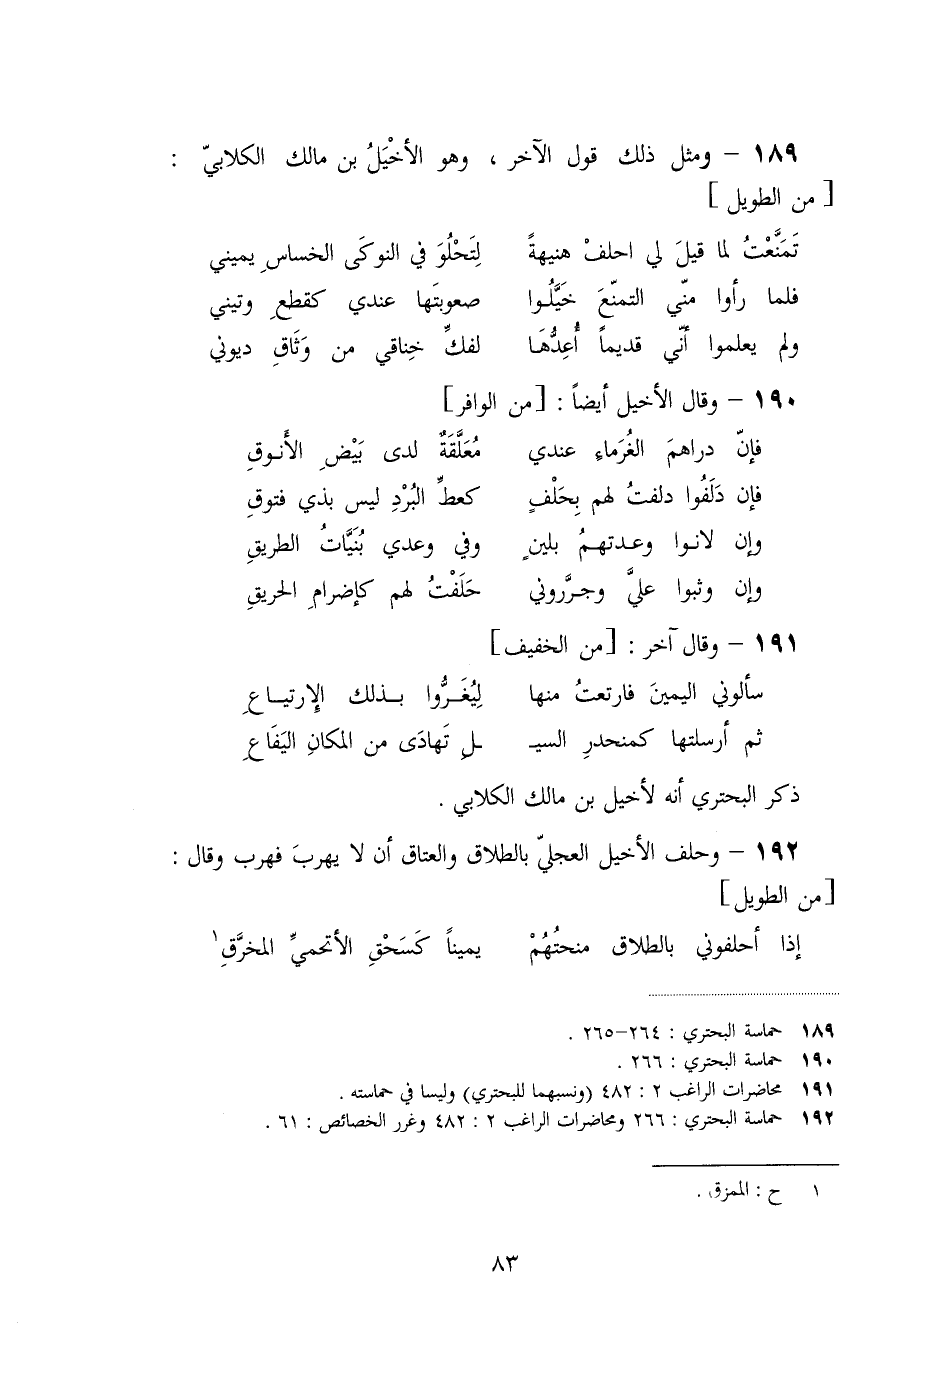 ١٨٩ – ومثل ذلك قول الآخر ، وهو الأخْيَلُ بن مالك الكلابيّ :
[ من الطويل ]
تَمَنَّعْتُ لما قيلَ لي احلفْ هنيهةً لِتَحْلُوَ في النوكَى الخساسِ يميني
فلما رأوا منّي التمنّعَ خَيَّلُوا صعوبتَها عندي كقطعِ وتيني
ولم يعلموا أنّي قديماً أُعِدُّهَا لفكِّ خِناقي من وَثَاقِ ديوني
١٩٠ – وقال الأخيل أيضاً : [من الوافر]
فإنّ دراهمَ الغُرَماءِ عندي مُعَلَّقَةٌ لدى بَيْضِ الأَنوقِ
فإن دَلَفُوا دلفتُ لهم بِحَلْفٍ كعطِّ البُرْدِ ليس بذي فتوقِ
وإن لانوا وعدتهمُ بلينٍ وفي وعدي بُنَيَّاتُ الطريقِ
وإن وثبوا عليَّ وجرَّروني حَلَفْتُ لهم كإضرامِ الحريقِ
١٩١ – وقال آخر : [من الخفيف]
سألوني اليمينَ فارتعتُ منها لِيُغَرُّوا بذلك الإرتياعِ
ثم أرسلتها كمنحدرِ السيـ ـلِ تَهادَى من المكانِ اليَفَاعِ
ذكر البحتري أنه لأخيل بن مالك الكلابي .
١٩٢ – وحلف الأخيل العجليّ بالطلاق والعتاق أن لا يهربَ فهرب وقال :
[من الطويل]
إذا أحلفوني بالطلاق منحتُهُمْ يميناً كَسَحْقِ الأتحميِّ المخرَّقِ١
١٨٩ حماسة البحتري : ٢٦٤–٢٦٥ .
١٩٠ حماسة البحتري : ٢٦٦ .
١٩١ محاضرات الراغب ٢ : ٤٨٢ (ونسبهما للبحتري) وليسا في حماسته .
١٩٢ حماسة البحتري : ٢٦٦ ومحاضرات الراغب ٢ : ٤٨٢ وغرر الخصائص : ٦١ .
١ ح : الممزق .
٨٣